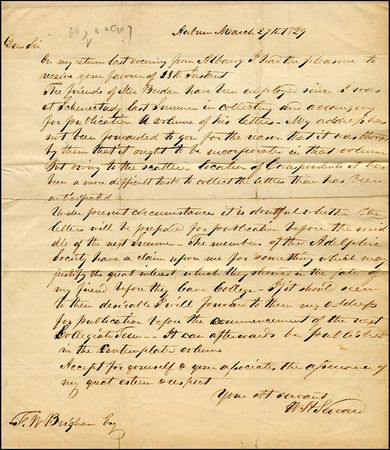 Auburn March 27th 1839
Dear Sir
On my return last evening from Albany I had the pleasure to
receive your favour of 23th Instant
The friends of Mr Berdan have been employed since I was
at Schenectady last summer in collecting and arranging
for publication a volume of his letters - My address has
not been forwarded to you for the reason that it was thought
by them that it ought to be incorporated in that volume
But owing to the scattered location of Correspondents it has
been a more difficult task to collect the letters than has been
anticipated
Under present circumstances it is doubtful whether the
letters will be prepared for publication before the mid
dle of the next summer - The members of the Adelphic
Society have a claim upon me for something which may
justify the great interest which they showed in the fate of
my friend before they leave College - If it should seem
to them desirable I will forward to them my address
for publication before the commencement of the next
Collegiate Term - It can afterwards be published
in the contemplated volume
Accept for yourself & your associates the assurance of
my great esteem & respect
Your Obt servant
W H Seward
F. W. Brigham Esq